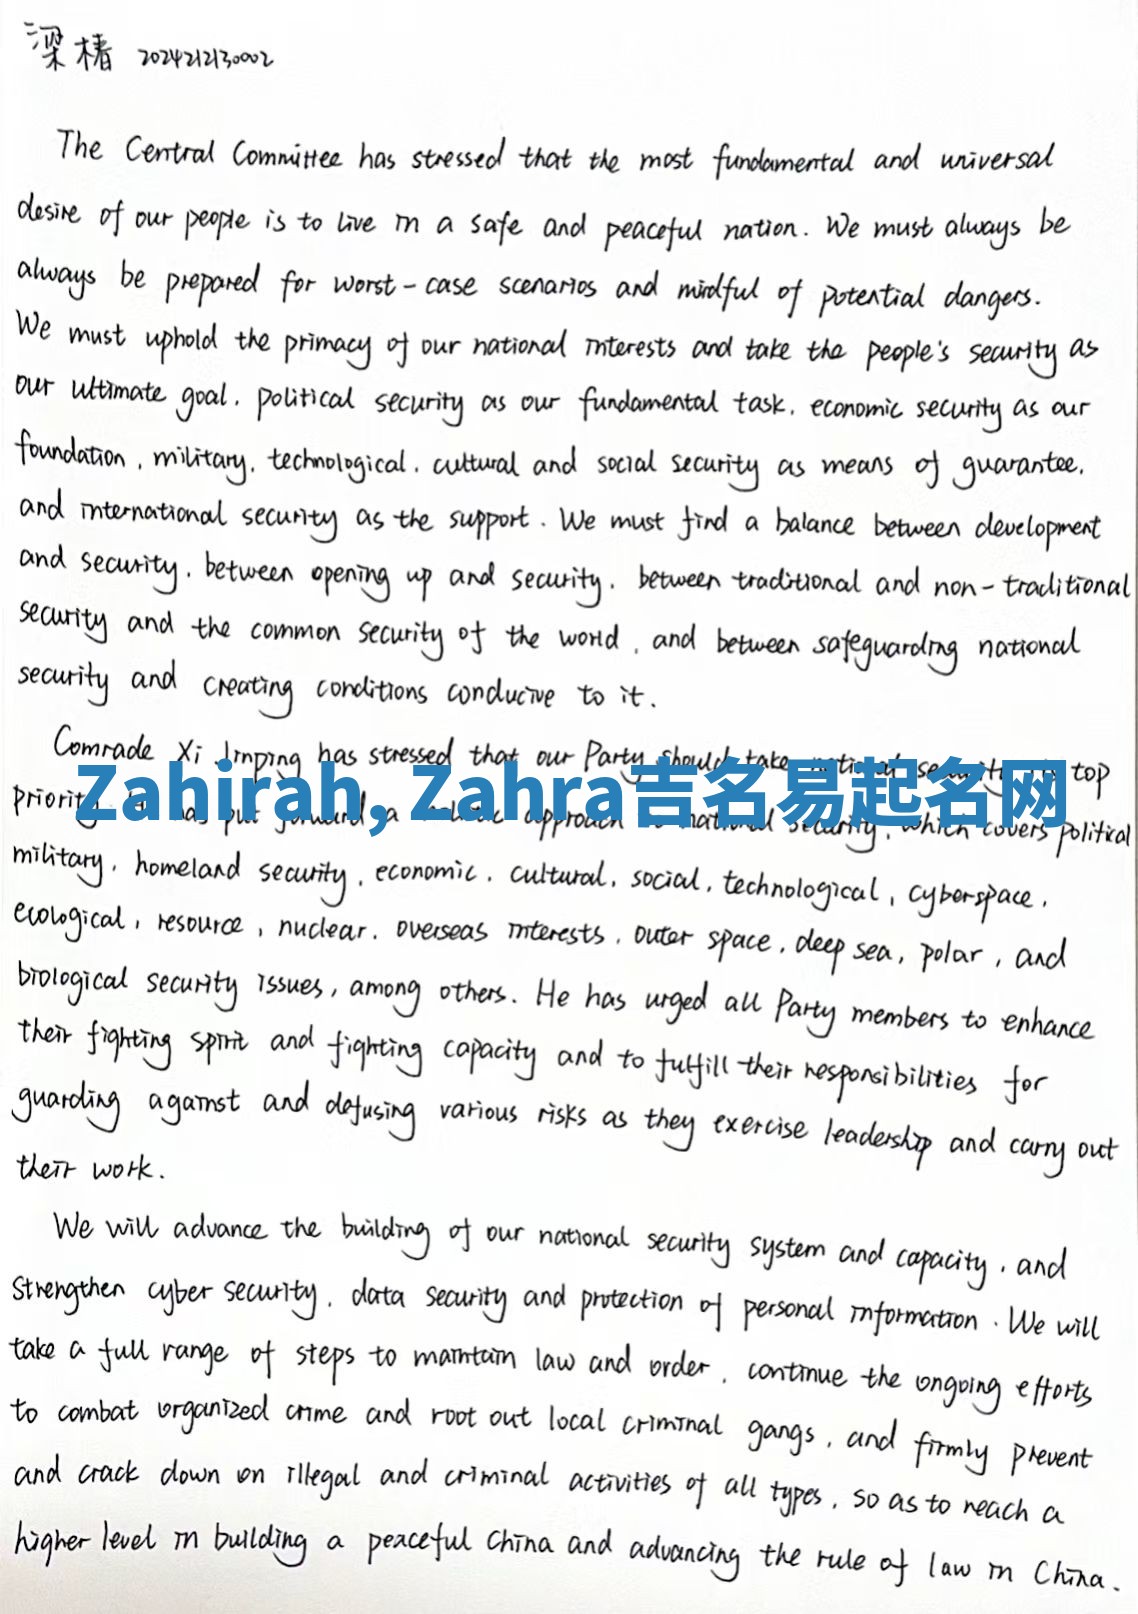 梁椿 2024212130002
The Central Committee has stressed that the most fundamental and universal
desire of our people is to live in a safe and peaceful nation. We must always be
always be prepared for worst-case scenarios and mindful of potential dangers.
We must uphold the primacy of our national interests and take the people's security as
our ultimate goal, political security as our fundamental task, economic security as our
foundation, military, technological, cultural and social security as means of guarantee,
and international security as the support. We must find a balance between development
and security, between opening up and security, between traditional and non-traditional
security and the common security of the world, and between safeguarding national
security and creating conditions conducive to it.
Comrade Xi Jinping has stressed that our Party should take national security top
Zahirah, Zahra吉名易起名网
priority. has put forward a approach to national security, which covers political
military, homeland security, economic, cultural, social, technological, cyberspace,
ecological, resource, nuclear, overseas interests, outer space, deep sea, polar, and
biological security issues, among others. He has urged all Party members to enhance
their fighting spirit and fighting capacity and to fulfill their responsibilities for
guarding against and defusing various risks as they exercise leadership and carry out
their work.
We will advance the building of our national security system and capacity, and
strengthen cyber security, data security and protection of personal information. We will
take a full range of steps to maintain law and order, continue the ongoing efforts
to combat organized crime and root out local criminal gangs, and firmly prevent
and crack down on illegal and criminal activities of all types, so as to reach a
higher level in building a peaceful China and advancing the rule of law in China.